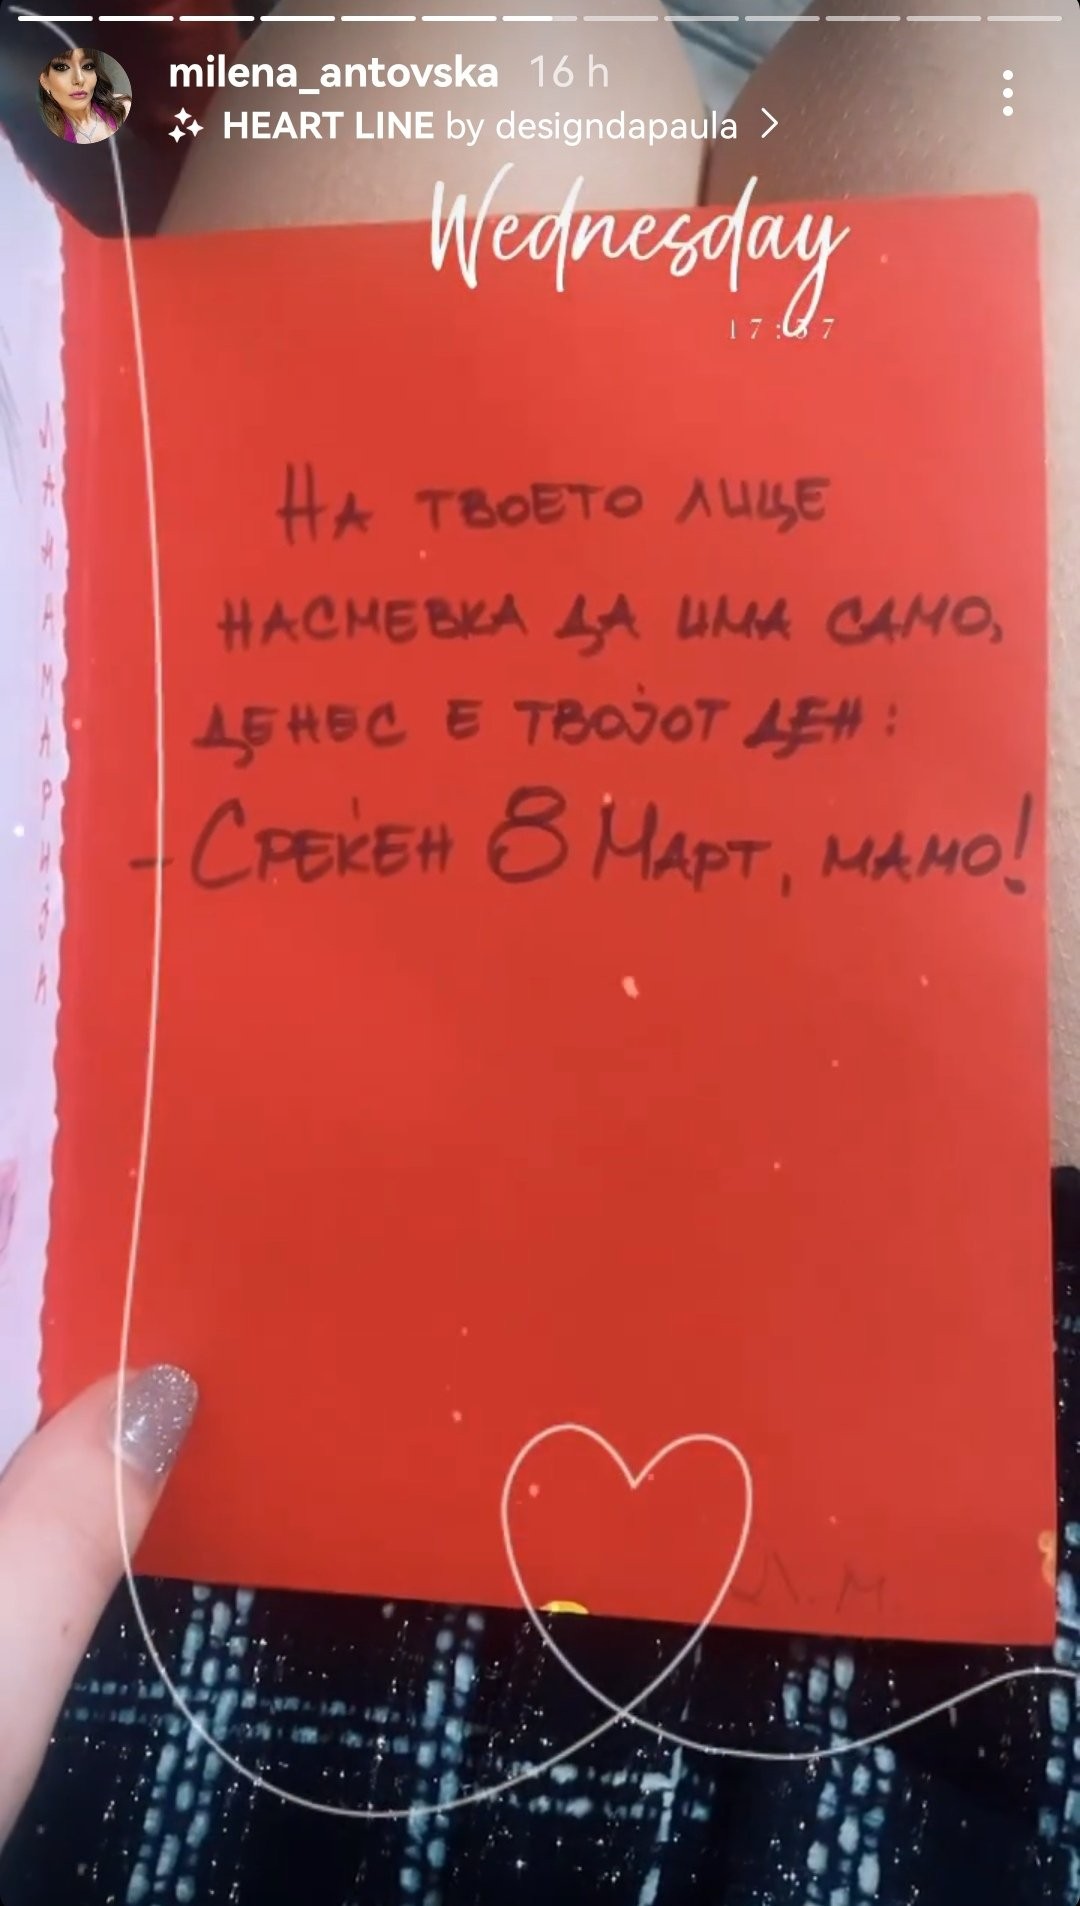 milena_antovska 16 h
HEART LINE by designdapaula
Wednesday
17:37
На твоето лице
насмевка да има само,
денес е твојот ден:
- Среќен 8 Март, мамо!
Л.М.
ЛАНА МАРИЈА